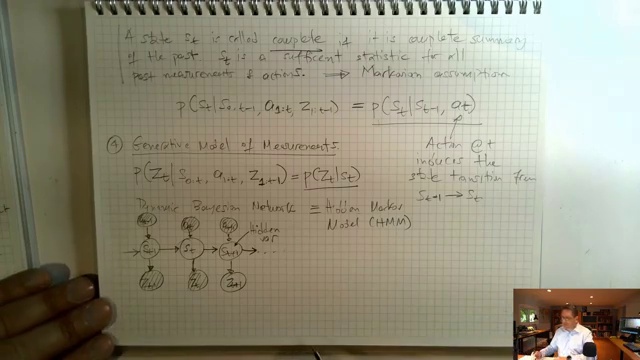 A state St is called complete if it is complete summary
of the past St is a sufficient statistic for all
past measurements & actions. ⟹ Markovian assumption
p(St | S0:t-1, a1:t, Z1:t-1) = p(St | St-1, at)
Action @ t
induces the
state transition from
St-1 → St
④ Generative Model of Measurements
p(Zt | S0:t, a1:t, Z1:t-1) = p(Zt | St)
Dynamic Bayesian Network ≡ Hidden Markov
Model (HMM)
Hidden
at-1 at at+1
St-1 St St+1 ...
Zt-1 Zt Zt+1